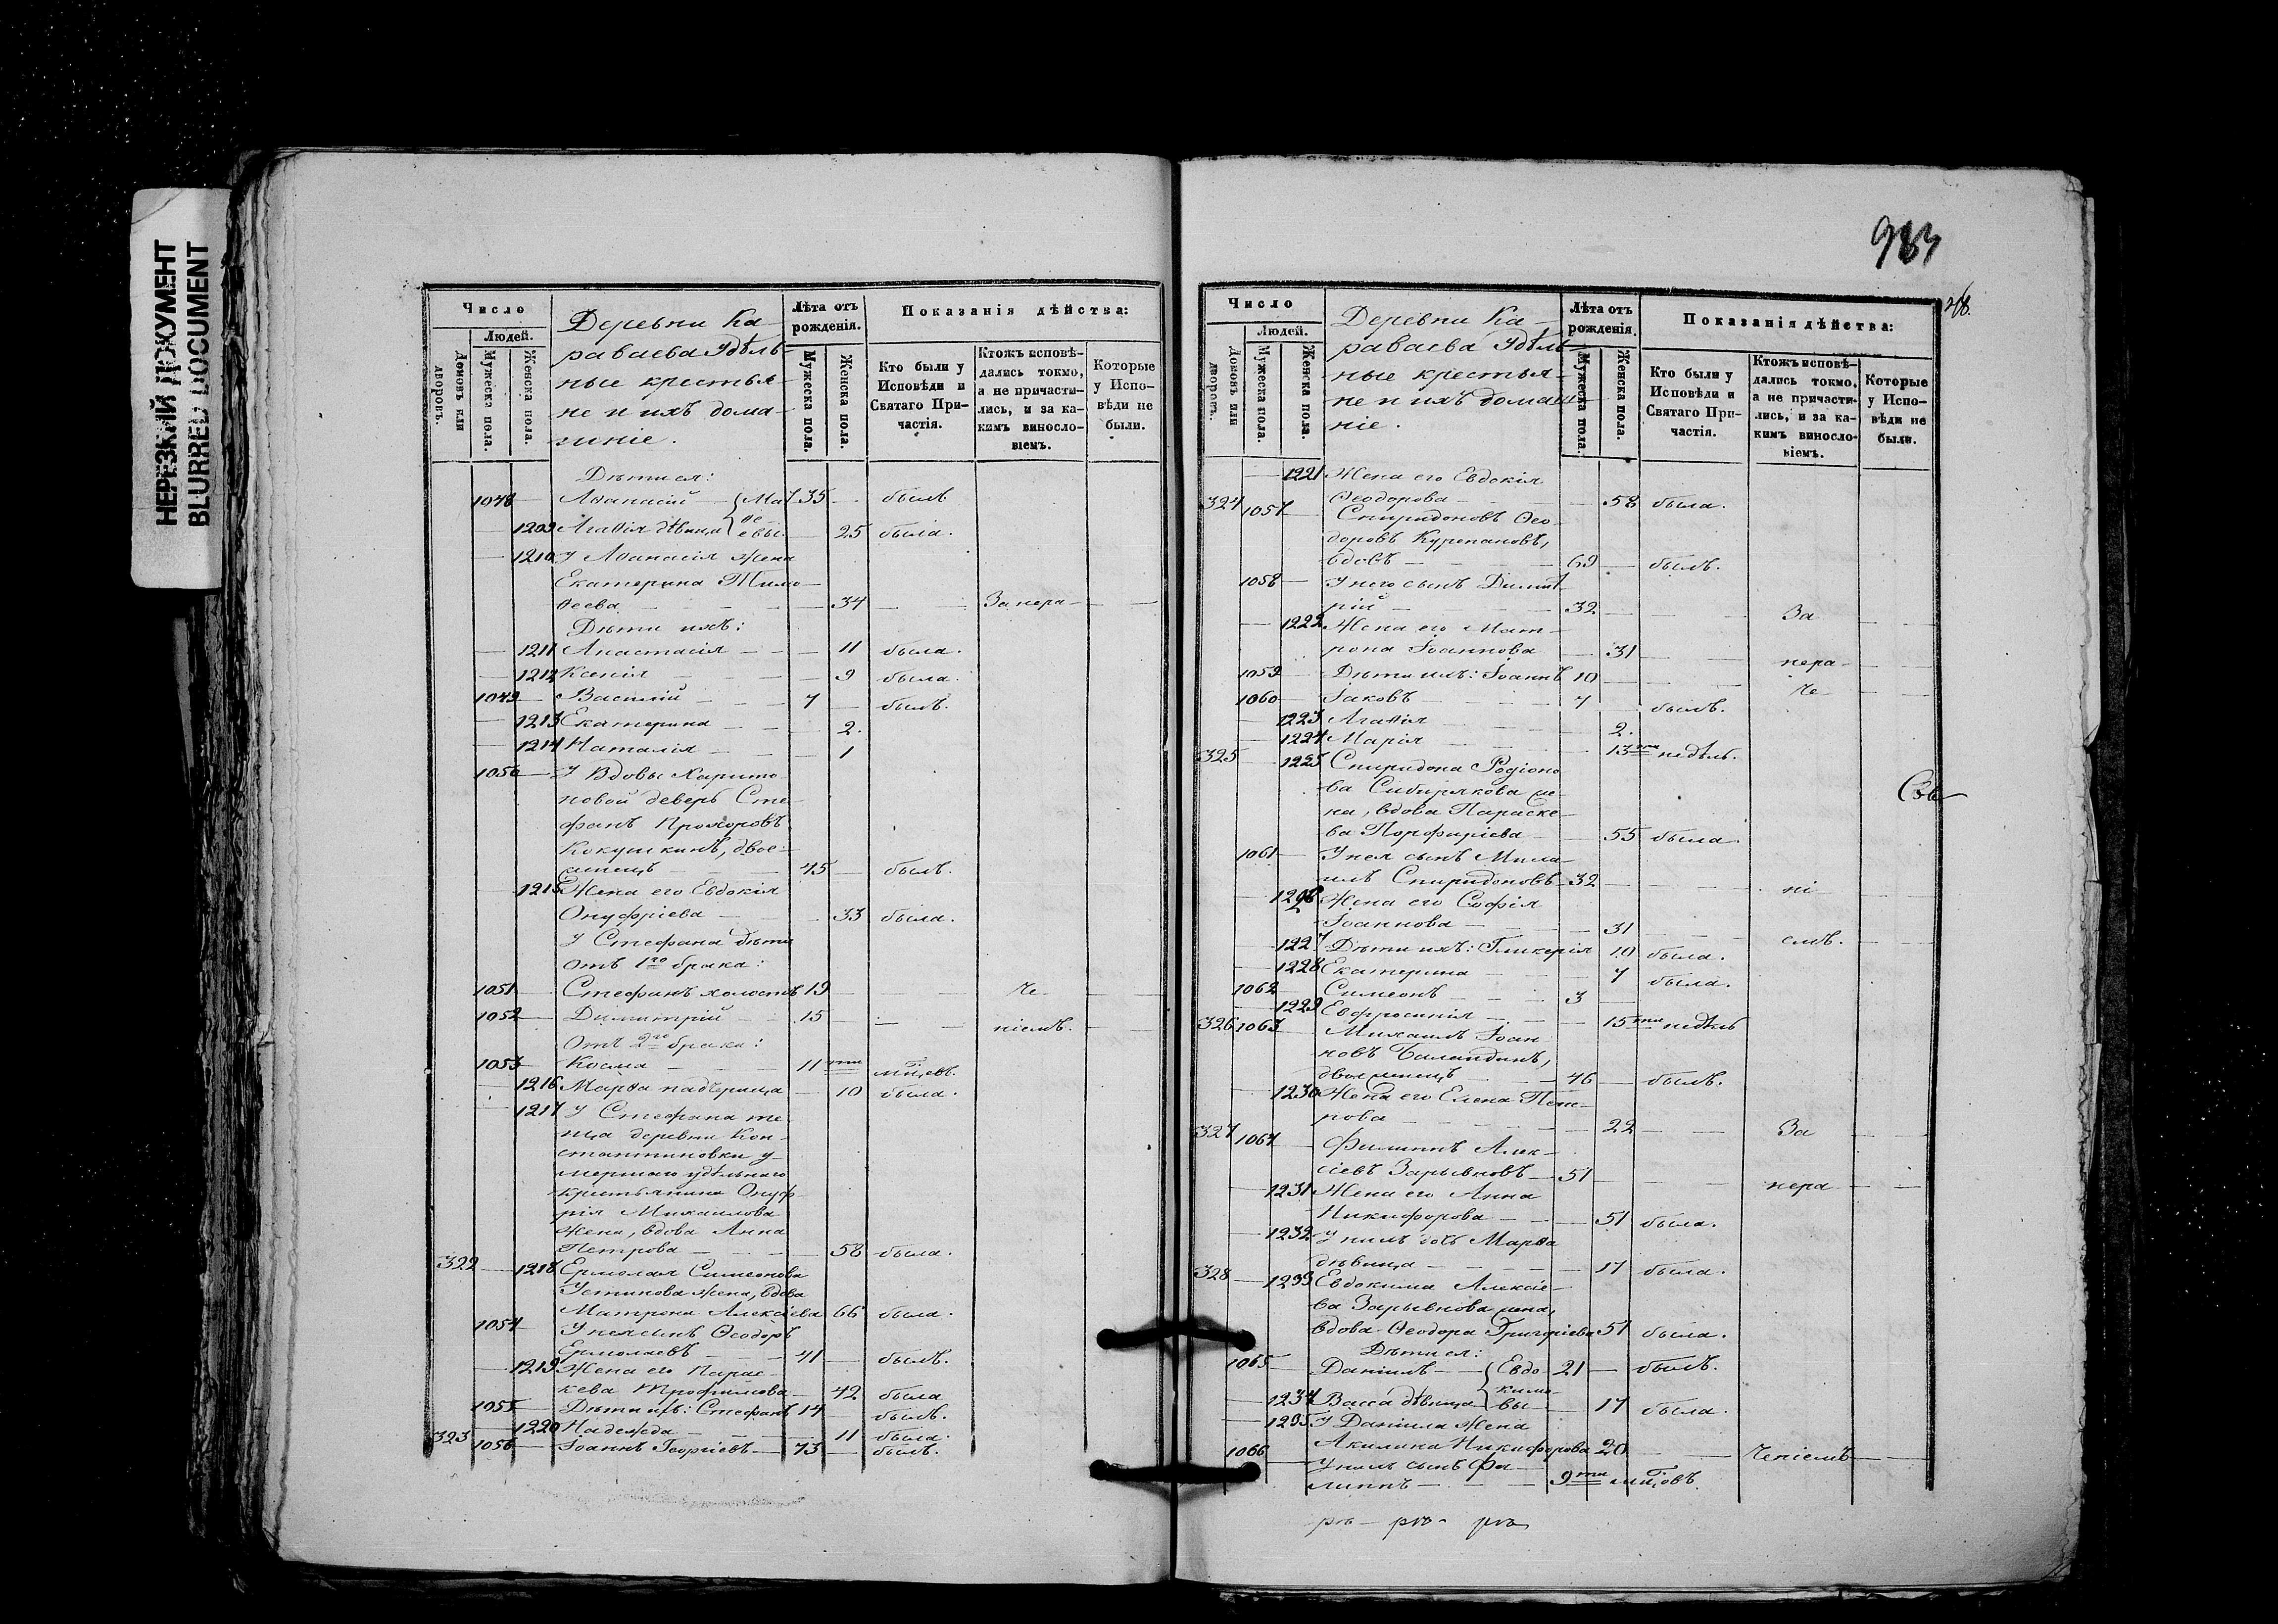 НЕРЕЗКИЙ ДОКУМЕНТ
BLURRED DOCUMENT
Число
Людей.
Домовъ или дворовъ.
Мужеска пола.
Женска пола.
Деревни Ка-
раваева Удѣль-
ные крестья-
не и ихъ дома-
шніе.
Лѣта отъ рожденія.
Мужеска пола.
Женска пола.
Показанія дѣйства:
Кто были у Исповѣди и Святаго При-частія.
Ктожъ исповѣ-дались токмо, а не причасти-лись, и за ка-кимъ винosло-віемъ.
Которые у Испо-вѣди не были.
Дѣти ея:
1048 Аѳанасій Мат 35 былъ
1209 Агаѳія дѣвица ѳе евы 25 была.
1210 У Аѳанасія жена
Екатерина Тимо-
ѳеева 34 За нера-
Дѣти ихъ:
1211 Анастасія 11 была.
1212 Ксенія 9 была.
1049 Василій 7 былъ.
1213 Екатерина 2.
1214 Наталія 1
1050 У Вдовы Харито-
новой деверь Сте-
фанъ Прохоровъ
Кокушкинъ, двое-
женецъ 45 былъ.
1215 Жена его Евдокія
Онуфріева 33 была.
У Стефана дѣти
Отъ 1го брака:
1051 Стефанъ холостъ 19 Че-
1052 Димитрій 15 ніемъ.
Отъ 2го брака:
1053 Косма 11ти мѣцевъ.
1216 Марѳа падчерица 10 была.
1217 У Стефана те-
ща деревни Кон-
стантиновки у-
мершаго удѣльнаго
крестьянина Онуф-
рія Михаилова
жена, вдова Анна
Петрова 58 была.
322 1218 Ермолая Симеонова
Устинова жена, вдова
Матрона Алексіева 66 была.
1054 У нея сынъ Ѳеодоръ
Ермолаевъ 41 былъ.
1219 Жена его Парас-
кева Трофимова 42 была
1055 Дѣти ихъ: Стефанъ 14 былъ.
1220 Надежда 11 была.
323 1056 Іоаннъ Георгіевъ 73 былъ.
983
Число
Людей.
Домовъ или дворовъ.
Мужеска пола.
Женска пола.
Деревни Ка-
раваева Удѣль-
ные крестья-
не и ихъ домаш-
ніе.
Лѣта отъ рожденія.
Мужеска пола.
Женска пола.
Показанія дѣйства:
Кто были у Исповѣди и Святаго При-частія.
Ктожъ исповѣ-дались токмо, а не причасти-лись, и за ка-кимъ виносло-віемъ.
Которые у Испо-вѣди не были.
1221 Жена его Евдокія
Ѳеодорова 58 была.
324 1057 Спиридонъ Ѳео-
доровъ Курепановъ,
вдовъ 69 былъ.
1058 У него сынъ Димит-
рій 32 За
1222 Жена его Мат-
рона Іоаннова 31 нера-
1059 Дѣти ихъ: Іоаннъ 10 Че-
1060 Іаковъ 7 былъ.
1223 Агаѳія 2.
1224 Марія 13ти недѣль.
325 1225 Спиридона Родіоно-
ва Сибирякова же-
на, вдова Параске-
ва Порфиріева 55 была.
1061 У нея сынъ Миха-
илъ Спиридоновъ 32 ні-
1226 Жена его Софія
Іоаннова 31 емъ.
1227 Дѣти ихъ: Гликерія 10 была.
1228 Екатерина 7 была.
1062 Симеонъ 3
1229 Евфросинія 15ти недѣль
326 1063 Михаилъ Іоан-
новъ Биландинъ,
двоеженецъ 46 былъ.
1230 Жена его Елена Пет-
рова 22 За
327 1064 Филиппъ Алек-
сіевъ Зарывновъ 51 нера
1231 Жена его Анна
Никифорова 51 была.
1232 У нихъ дочь Марѳа
дѣвица 17 была.
328 1233 Евдокима Алексіе-
ва Зарывнова жена,
вдова Ѳеодора Григоріева 51 была.
Дѣти ея:
1065 Даніилъ Евдо- 21 былъ.
1234 Васса дѣвица кимо-вы 17 была.
1235 У Даніила жена
Акилина Никифорова 20 Ченіемъ
1066 У нихъ сынъ Фи-
липпъ 9ти мѣцовъ.